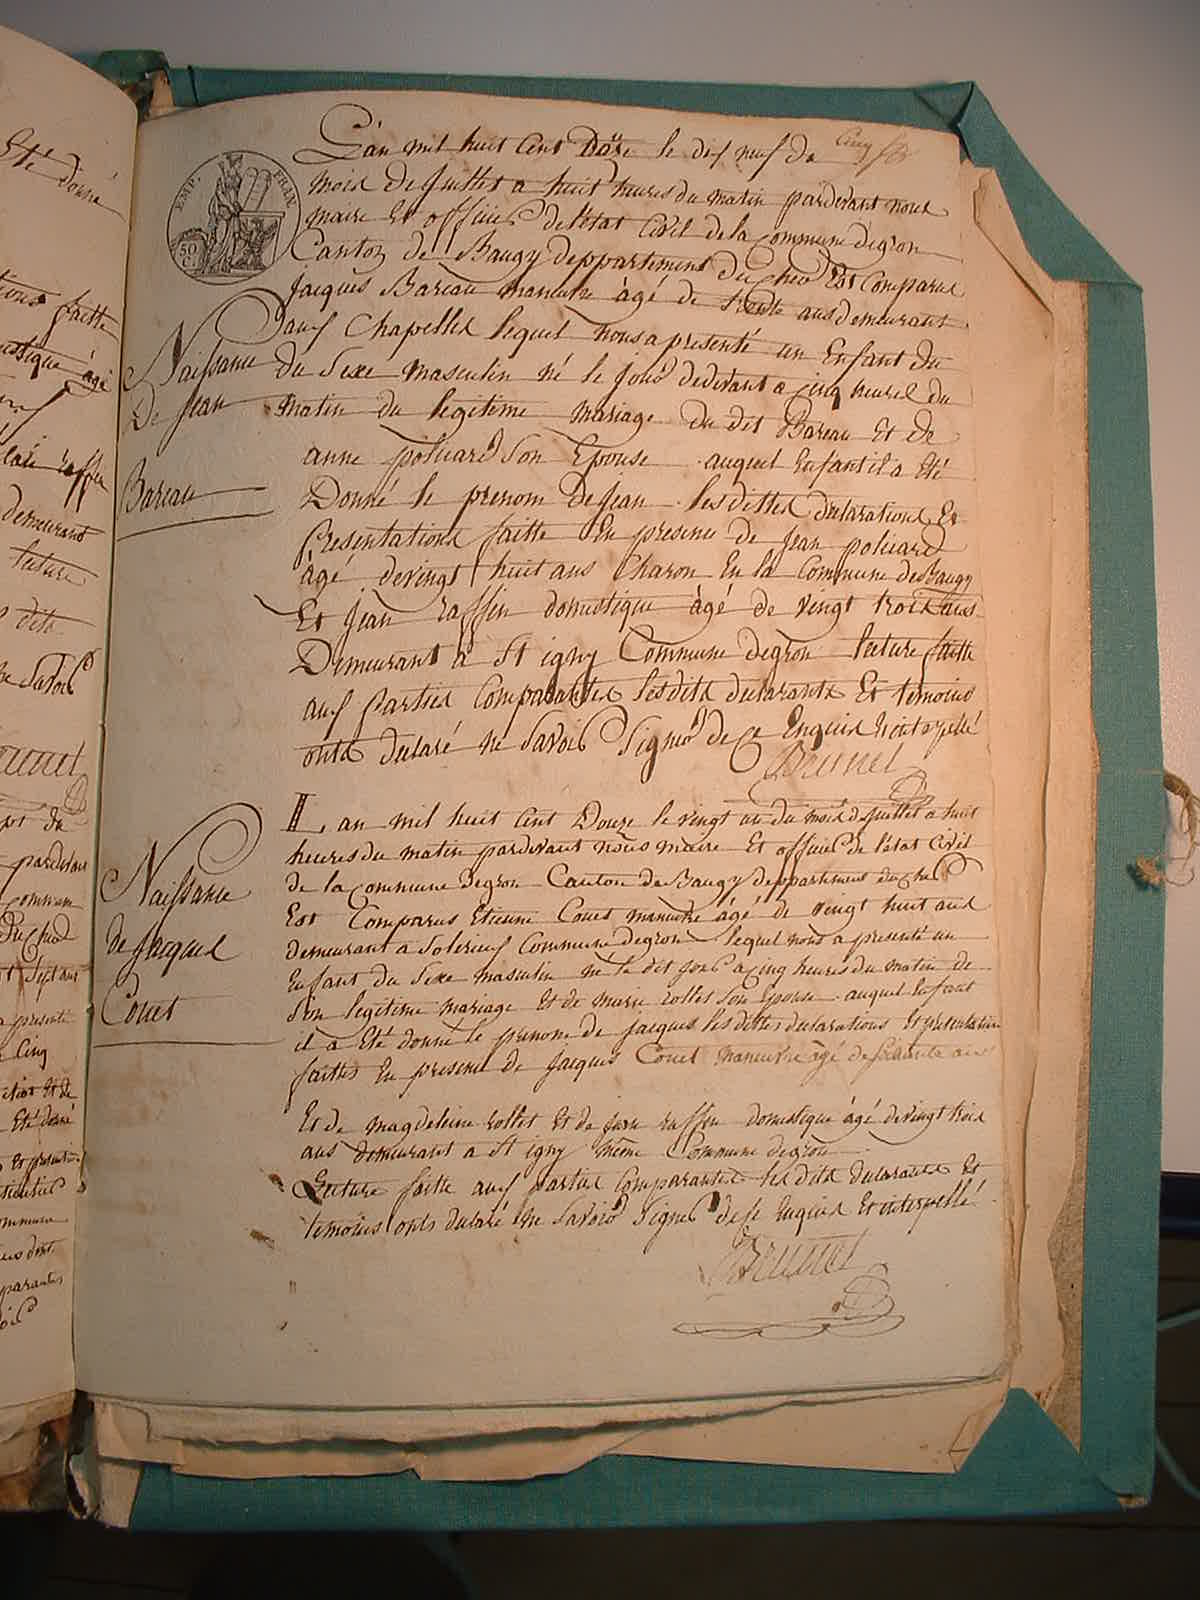 EMP. FRAN.
50 C.
Naissance
De Jean
Bareau
L'an mil huit Cent Douze le dix neuf du
mois de Juillet a huit heures du matin pardevant nous
maire Et officier De l'Etat Civil de la Commune degron
Canton de Baugy Deppartement du Cher Est Comparus
Jacques Bareau maneuvre âgé de trente ans demeurant
aux Chapelles lequel nous a presenté un Enfant du
du Sexe masculin né le jour dedevant a cinq heures du
matin du legitime mariage du dit Bareau Et de
anne poliard Son Epouse auquel Enfant il a Eté
Donné le prenom de Jean les dittes declarations Et
Presentations faitte En presence de Jean poliard
âgé devingt huit ans Charon En la Commune de Baugy
Et Jean raffin domestique âgé de vingt trois ans
Demeurant a St igny Commune degron lecture faitte
aux parties Comparantes lesdits declarants Et temoins
onts declaré ne Savoir Signer de ce Enquis Et interpellé
Brunet
Naissance
de Jacques
Couet
L'an mil huit Cent Douze le vingt un du mois de Juillet a huit
heures du matin pardevant nous maire Et officier de l'état Civil
de la Commune degron Canton de Baugy deppartement du Cher
Est Comparus Etienne Couet maneuvre âgé de vingt huit ans
demeurant a Solerieux Commune degron lequel nous a presenté un
Enfant du Sexe masculin né le dit jour a cinq heures du matin de
Son legitime mariage Et de marie rollet Son Epouse auquel Enfant
il a Eté donné le prenom de Jacques les dittes declarations Et presentation
faittes En presence de Jacques Couet maneuvre âgé de soixante ans
Et de magdeleine rollet Et de Jean raffin domestique âgé de vingt trois
ans demeurant a St igny même Commune degron
Lecture faitte aux parties Comparantes les dits declarants Et
temoins onts declaré Ne Savoir Signer de ce Enquis Et interpellé
Brunet